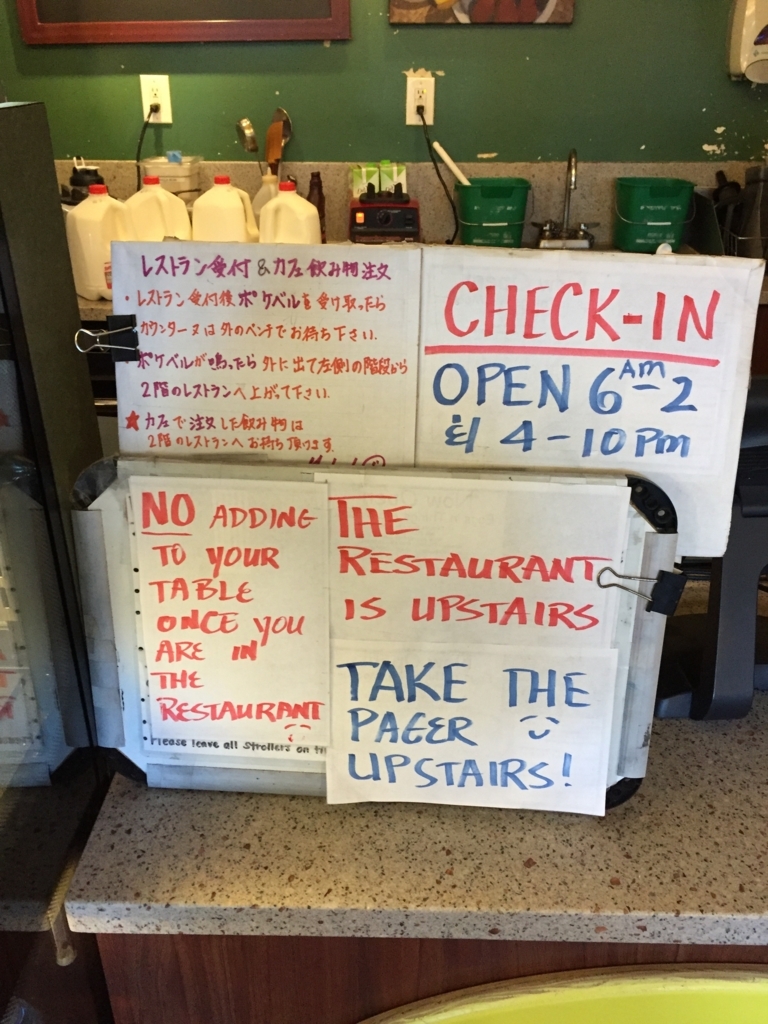 レストラン受付 & カフェ飲み物注文
・レストラン受付後ポケベルを受け取ったら
カウンター又は外のベンチでお待ち下さい.
・ポケベルが鳴ったら外に出て左側の階段から
2階のレストランへ上がって下さい.
★カフェで注文した飲み物は
2階のレストランへお持ち頂けます.
CHECK-IN
OPEN 6AM-2
& 4-10PM
NO ADDING
TO YOUR
TABLE
ONCE YOU
ARE IN
THE
RESTAURANT
Please leave all Strollers on
THE
RESTAURANT
IS UPSTAIRS
TAKE THE
PAGER
UPSTAIRS!